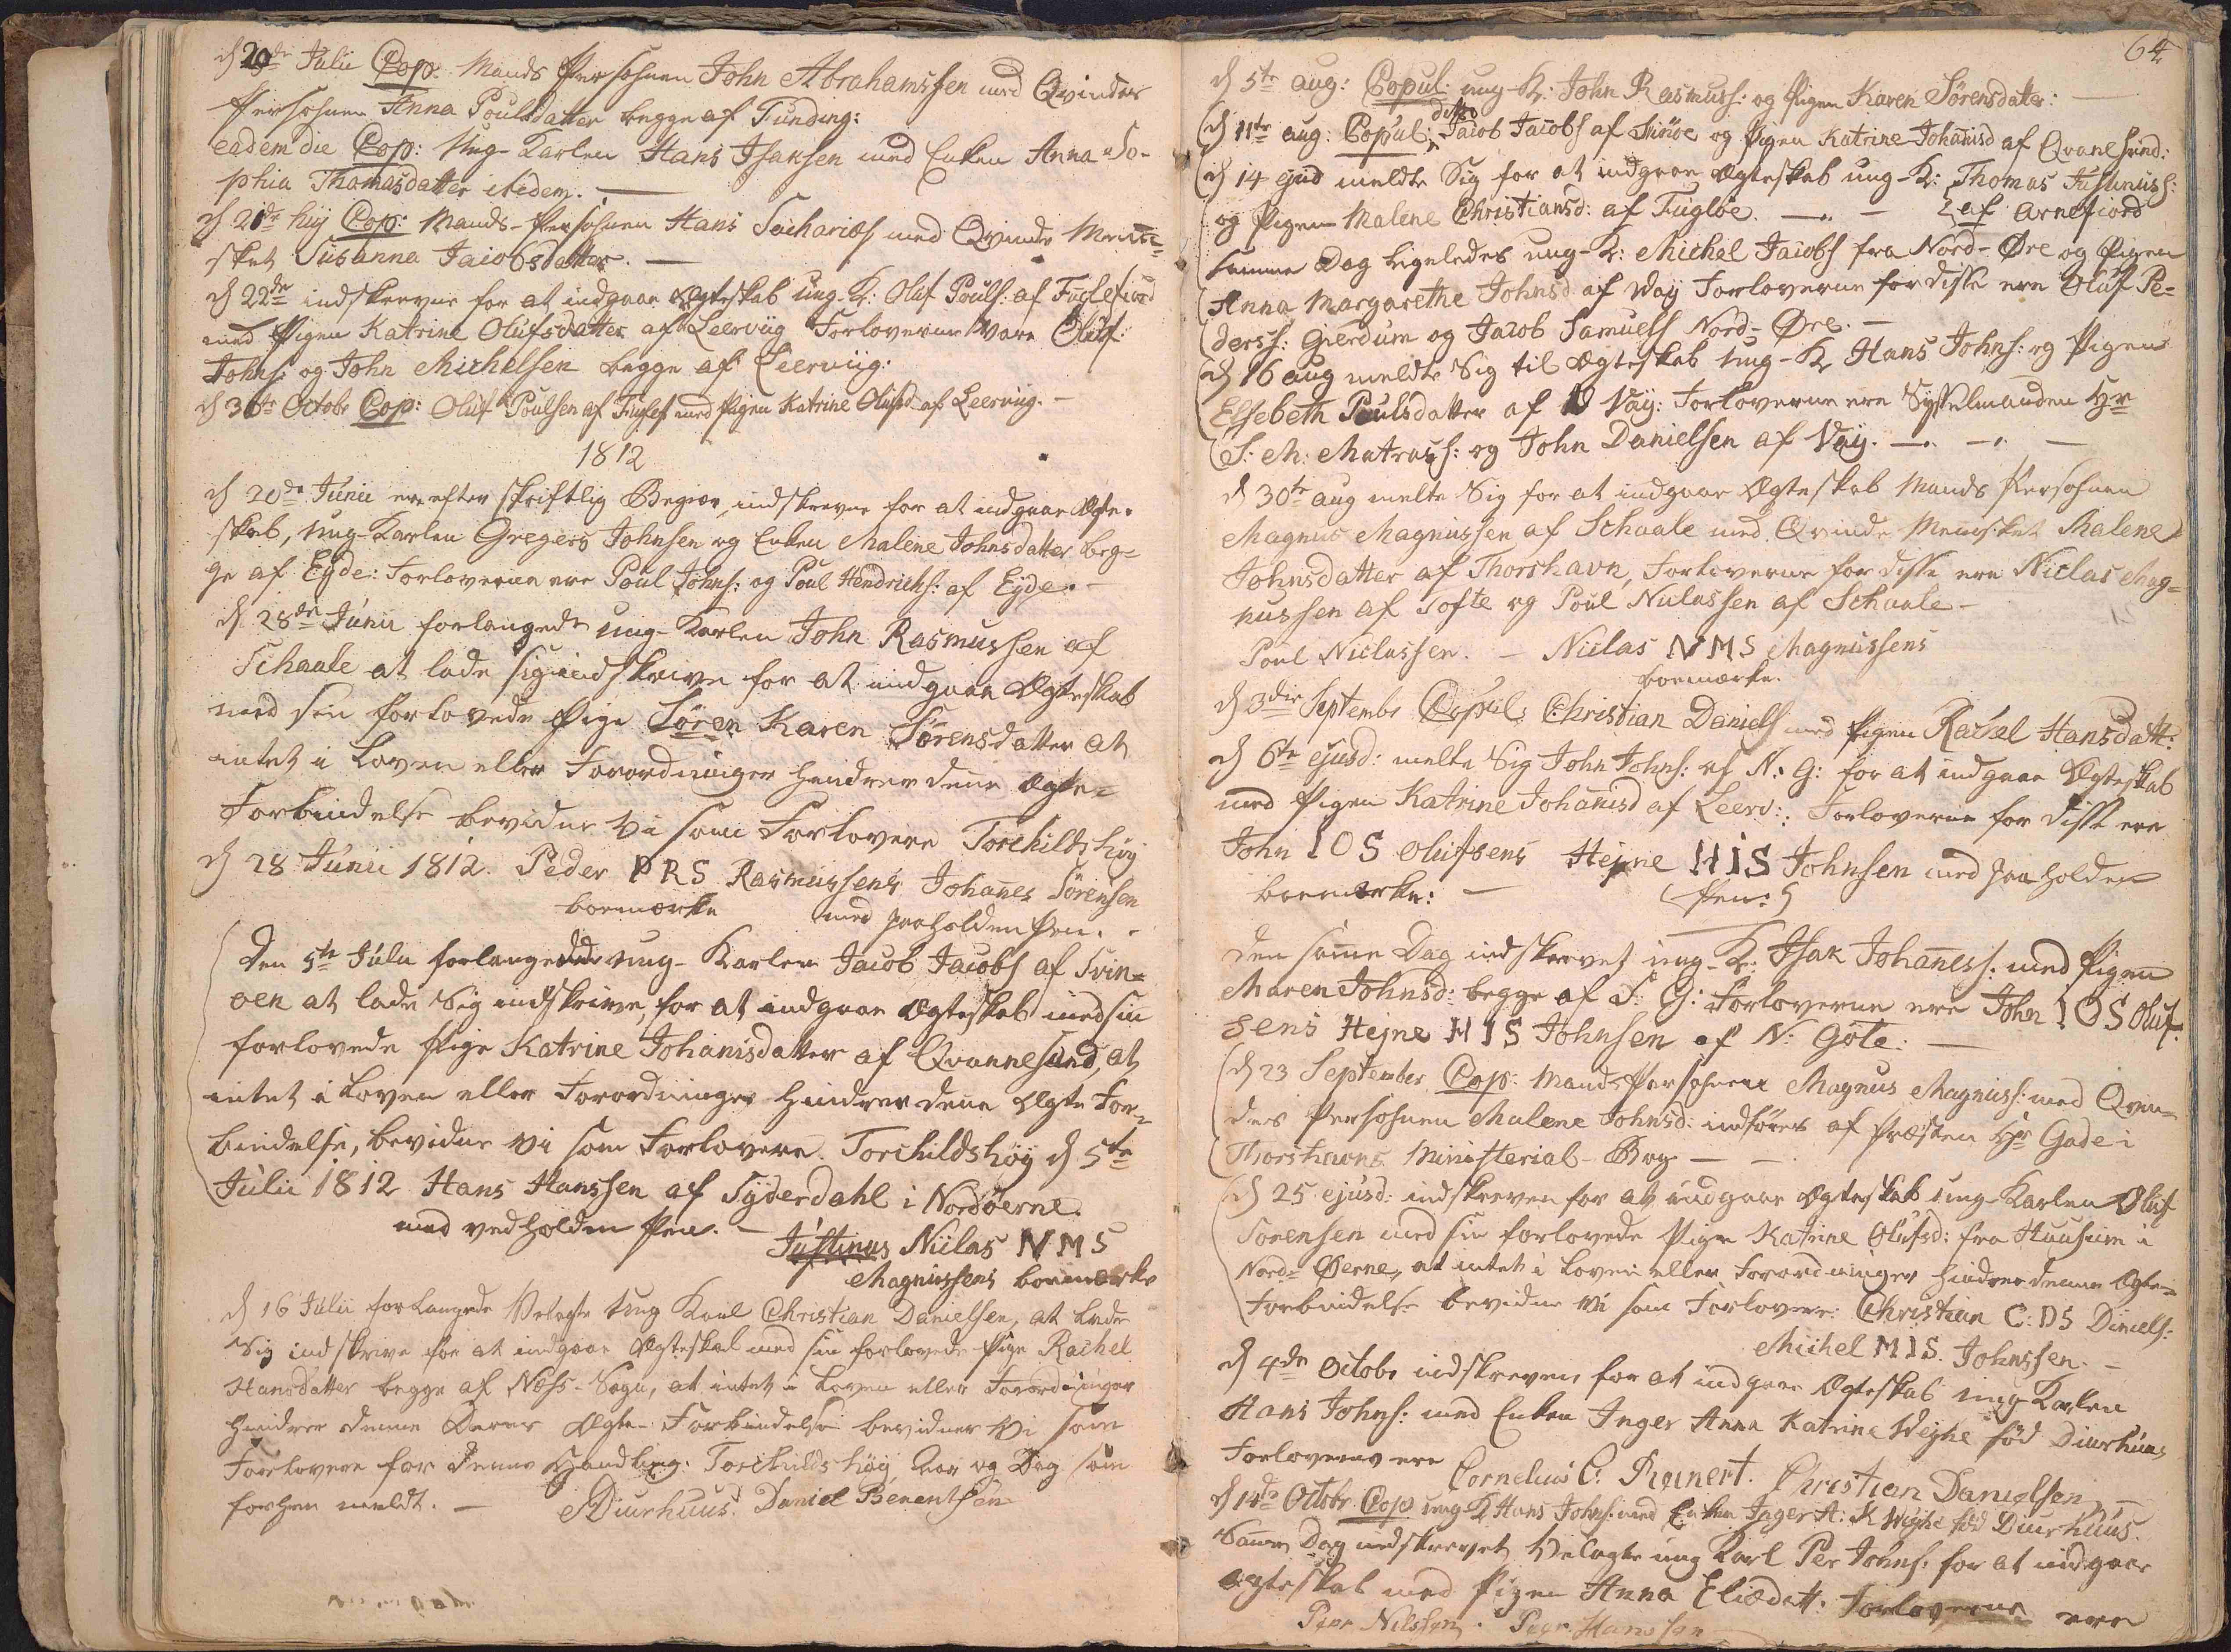 d 20de Julii Cop: Mands Persohnen John Abrahamssen med Qvindes
Persohnen Anna Poulsdatter begge af Funding:
eadem die Cop: Ung-Karlen Hans Isaksen med Enken Anna So-
phia Thomasdatter ibidem. —
d 21de huj Cop: Mands-Persohnen Hans Sachariæs med Qvinde Menne-
sket Susanna Jacobsdatter. —
d 22de indskrevne for at indgaae Ægteskab ung-K: Oluf Pouls: af Fuglefiord
med Pigen Katrine Olufsdatter af Leervüg Forloverne vare Oluf
Johns: og John Michelsen begge af Leervüg:
d 30te Octobr Cop: Oluf Poulsen af Fuglef med Pigen Katrine Olufsd af Leervüg. —
1812
d 20de Junii ere efter skriftlig Begier indskrevne for at indgaae Ægte-
skab, Ung-Karlen Gregers Johnsen og Enken Malene Johnsdatter beg-
ge af Eyde: Forloverne ere Poul Johns: og Poul Hendrichs: af Eyde. —
d 28de Junii forlangede ung-Karlen John Rasmussen af
Schaale at lade sig indskrive for at indgaae Ægteskab
med sin forlovede Pige Søren Karen Sørensdatter at
intet i Loven eller Forordninger hindrer denne Ægte-
Forbindelse bevidne vi som Forlovere Torchildshøy
d 28 Junii 1812. Peder PRS Rasmussens Johannes Sørensen
boemærke med paaholden Pen. -
Den 5te Julii forlangede ung-Karlen Jacob Jacobs af Svin-
øen at lade Sig indskrive, for at indgaae Ægteskab med sin
forlovede Pige Katrine Johanisdatter af Qvannesund, at
intet i Loven eller Forordninger hindrer denne Ægte For-
bindelse, bevidne vi som Forlovere. Torchildshøy d 5te
Julii 1812 Hans Hanssen af Syderdahl i Nordøerne.
med vedholden Pen. — Justinus Niclas NMS
Magnussens boemærke
d 16 Julii forlangede Velagte Ung Karl Christian Danielsen, at lade
Sig indskrive for at indgaae Ægteskab med sin forlovede Pige Rachel
Hansdatter begge af Næss-Sogn, at intet i Loven eller Forordninger
hindrer denne Deres Ægte-Forbindelse bevidner vi som
Forlovere for denne Handling. Torchildshøy Aar og Dag som
forhen meldt. — Diurhuus. Daniel Benentsen
64
d 5te aug: Copul: ung-K: John Rasmuss: og Pigen Karen Sørensdatter: —
d 11te aug: Copul: ditto Jacob Jacobs af Svinøe og Pigen Katrine Johanisd af Qvanesund:
d 14 ejusd meldte Sig for at indgaae Ægteskab ung-K: Thomas Justinuss:
og Pigen Malene Christiansd: af Fugløe. — af Arnefiord
samme Dag ligeledes ung-K: Michel Jacobs fra Nord-Øre og Pigen
Anna Margarethe Johnsd af Waÿ Forloverne for disse ere Oluf Pe-
derss: Gierdum og Jacob Samuels Nord-Øre. —
d 16 aug meldte Sig til Ægteskab ung-K Hans Johns: og Pigen
Elsebeth Poulsdatter af Vaÿ: Forloverne ere Sysselmanden Hr
S: M: Matrass: og John Danielsen af Vaÿ. —
d 30te aug melte Sig for at indgaae Ægteskab Mands Persohnen
Magnus Magnussen af Schaale med Qvinde Mennesket Malene
Johnsdatter af Thorshavn, Forloverne for disse ere Niclas Mag-
nussen af Tofte og Poul Niclassen af Schaale —
Poul Niclassen. — Niclas NMS Magnussens
boemærke.
d 3die Septembr Copul: Christian Daniels med Pigen Rachel Hansdatt:
d 6te ejusd: melte Sig John Johns: af N: G: for at indgaae Ægteskab
med Pigen Katrine Johanisd af Leerv: Forloverne for disse ere
John IOS Olufsens Hejne HIS Johnsen med paaholden
boemærke: — Pen:
den samme Dag indskrevet ung-K: Isak Johaness: med Pigen
Maren Johnsd: begge af S: G: Forloverne ere John IOS Oluf-
sens Hejne HIS Johnsen af N: Gøte: —
d 23 September Cop: Mands Persohnen Magnus Magnuss: med Qvin-
des Persohnen Malene Johnsd: indføres af Præsten Hr Gade i
Thorshavns Ministerial-Bog —
d 25 ejusd: indskreven for at indgaae Ægteskab ung-Karlen Oluf
Sørensen med sin forlovede Pige Katrine Olufsd: fra Huusum i
Nord-Øerne, at intet i Loven eller Forordninger hindrer denne Ægte-
Forbindelse bevidne vi som Forlovere: Christian C:DS Daniels:
Michel MIS. Johnssen. —
d 4de Octobr indskreven, for at indgaae Ægteskab ung Karlen
Hans Johns: med Enken Inger Anna Katrine Weyhe fød Diurhuus
Forloverne ere Cornelius C: Reinert. Christian Danielsen —
d 14de Octobr Cop ung K Hans Johns: med Enken Inger A: K Weyhe fød Diurhuus.
Samme Dag indskrevet Velagte ung Karl Per Johns: for at indgaae
ægteskab med Pigen Anna Eliædatt: Forloverne ere
Peer Nilssen. Peer Hanssen